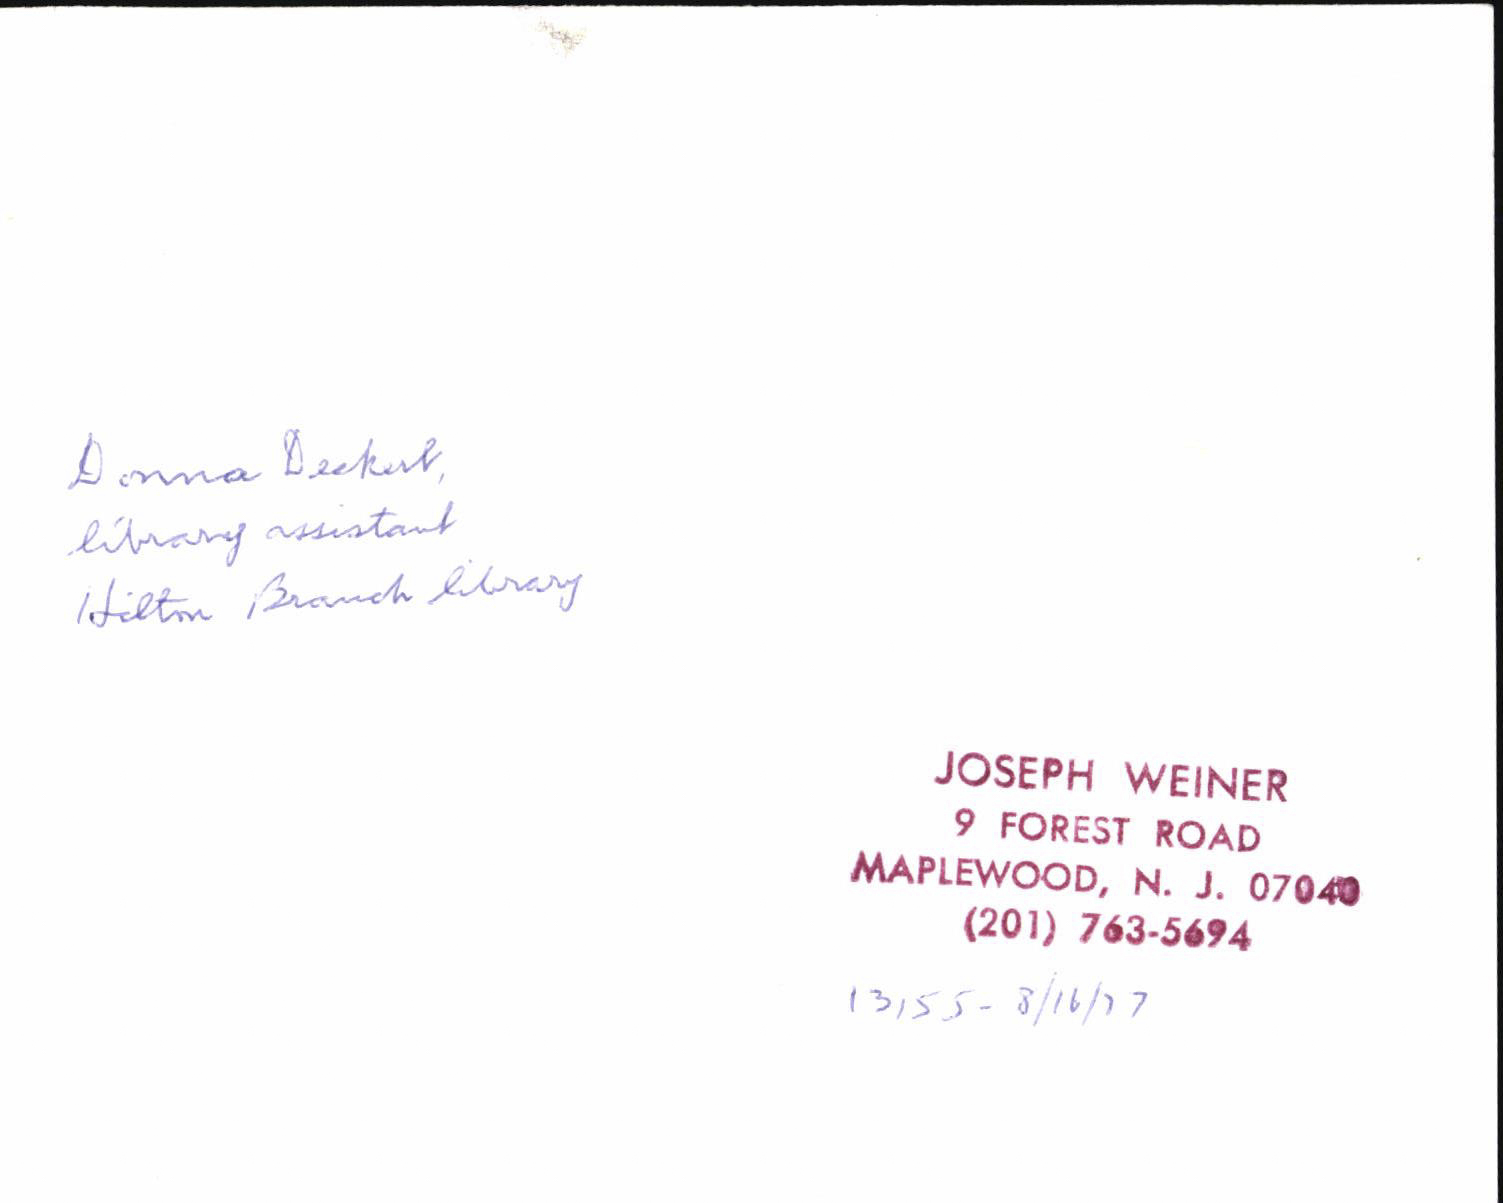 Donna Deckert,
library assistant
Hilton Branch library
JOSEPH WEINER
9 FOREST ROAD
MAPLEWOOD, N. J. 07040
(201) 763-5694
13155- 8/16/77